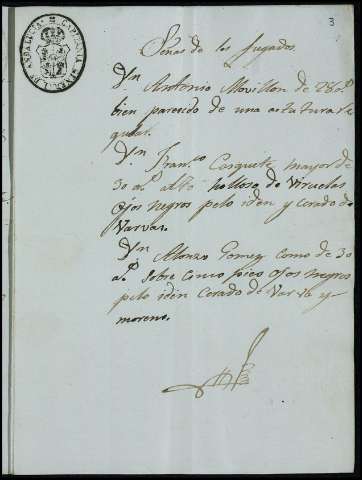 3
CAPITANIA GENERAL DE ANDALUCIA
Señas de los fugados.
Dn Antonio Movillon de 28 as
bien parecido de una estatura re
gular.
Dn Franco Cosquete mayor de
30 as alto holloso de Viruelas
Ojos negros pelo iden y cerado de
Varvas.
Dn Alonzo Gomez como de 30
as sobre cinco pies Ojos negros
pelo iden cerado de Varva y
moreno.